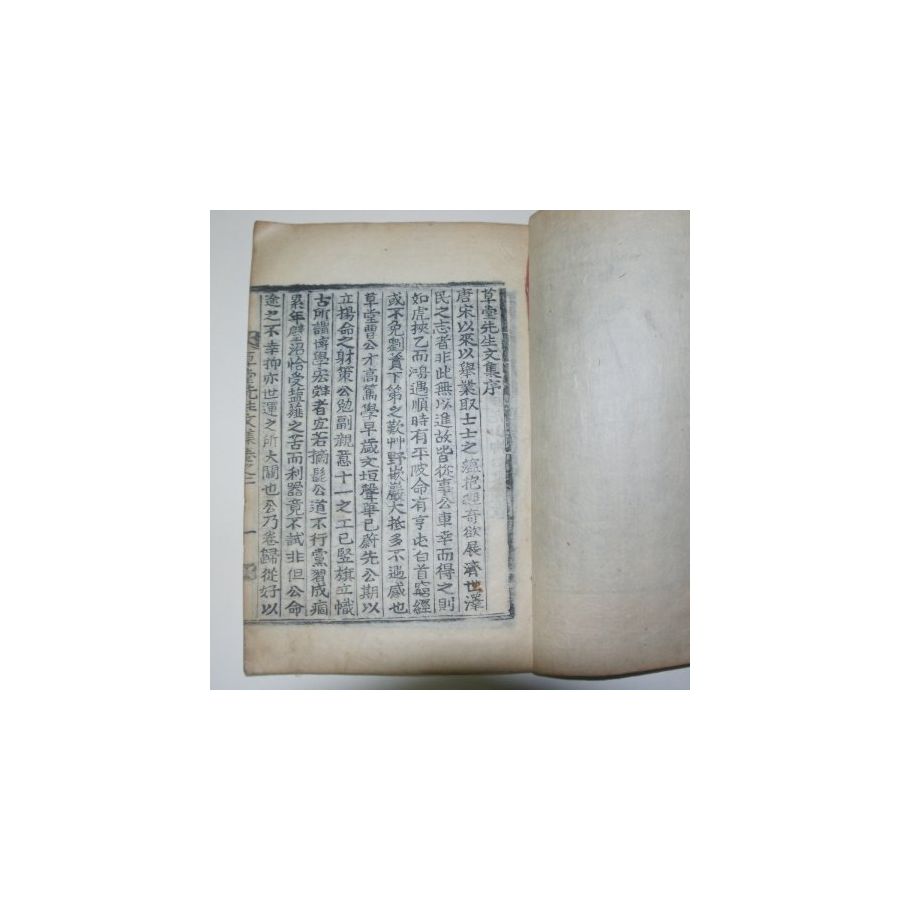 草堂先生文集序
唐宋以來以學業取士士之蘊抱瓌奇欲展濟世澤
民之志者非此無以進故皆從事公車幸而得之則
如虎挾乙而鴻遇順時有平陂命有亨屯白首窮經
或不免劉蕡下第之歎艸野嵌巖大抵多不遇感也
草堂曺公才高篤學早歲文垣聲華已蔚先公期以
立揚命之射策公勉副親意十一之工已竪旗立幟
古所謂博學宏辭者宜若摘髭公道不行黨習成痼
累年壁沼恰受鹽虀之苦而利器竟不試非但公命
途之不幸抑亦世運之所大關也公乃卷歸從好以
草堂先生文集卷之一 一